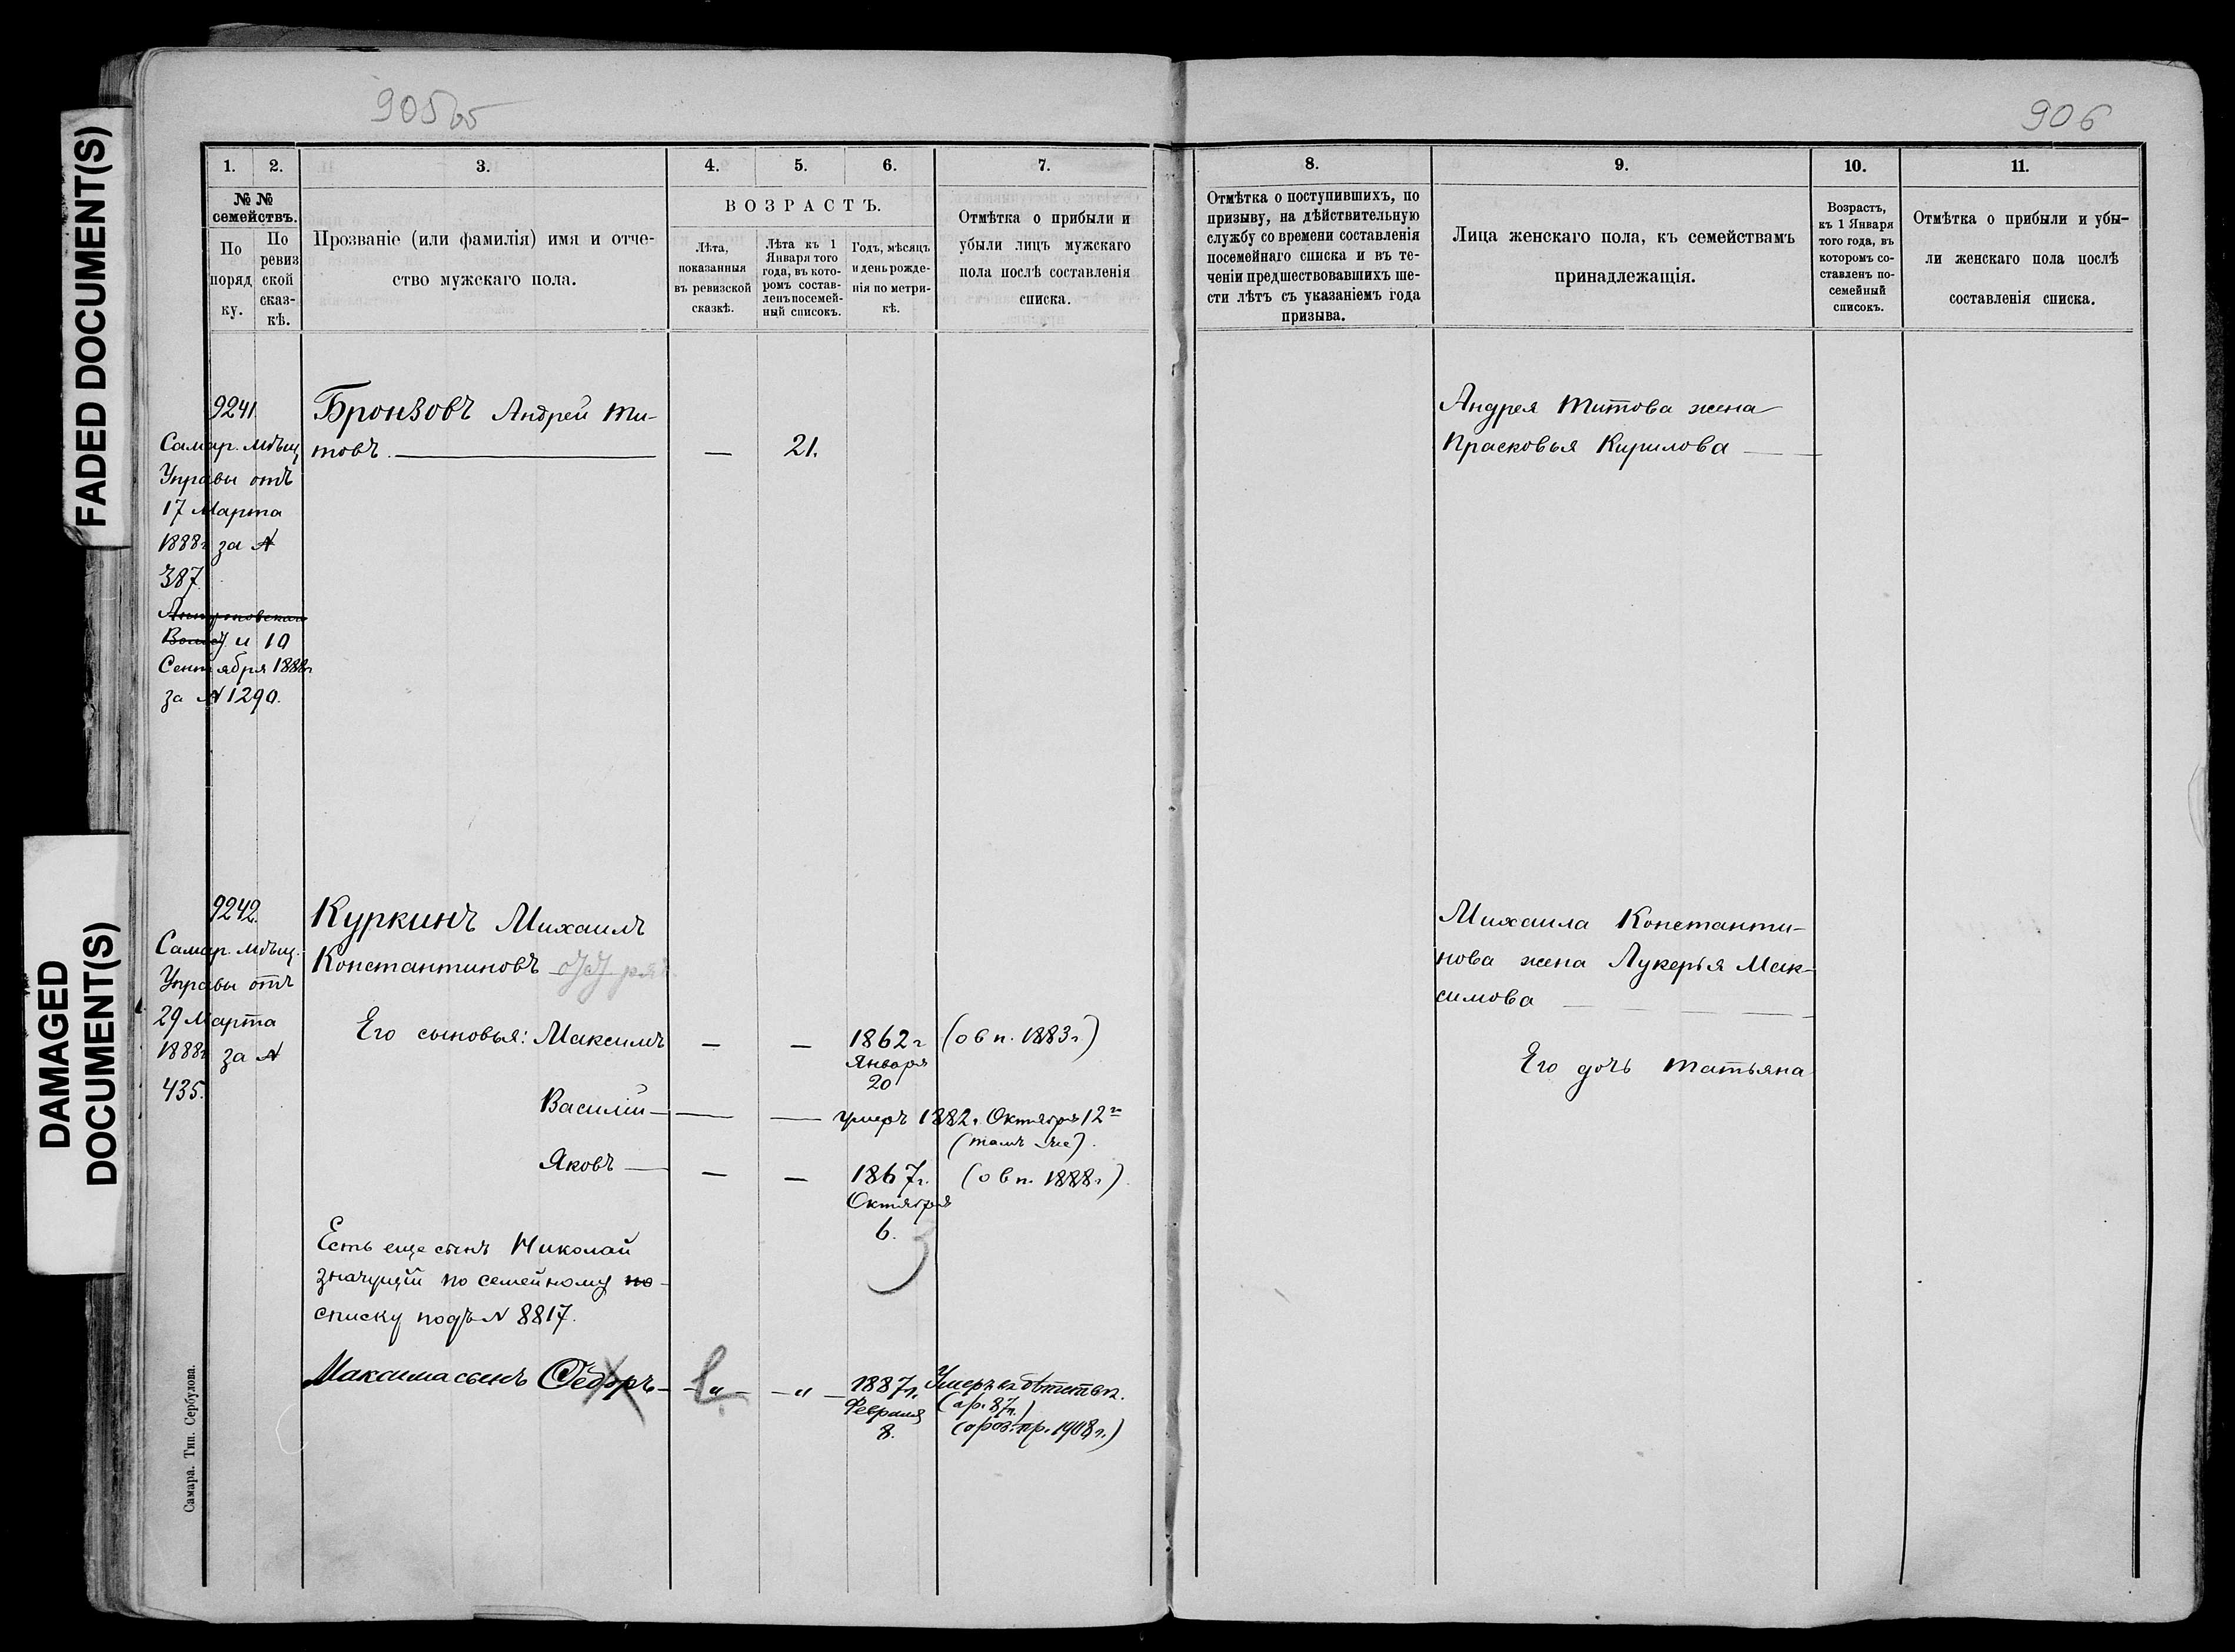 FADED DOCUMENT(S)
DAMAGED
DOCUMENT(S)
905об
906
1. 2. 3. 4. 5. 6. 7.
№ № семействъ.
По порядку.
По ревизской сказкѣ.
Прозваніе (или фамилія) имя и отче-
ство мужскаго пола.
ВОЗРАСТЪ.
Лѣта,
показанныя
въ ревизской
сказкѣ.
Лѣта къ 1
Января того
года, въ кото-
ромъ состав-
ленъ посемей-
ный списокъ.
Годъ, мѣсяцъ
и день рожде-
нія по метри-
кѣ.
Отмѣтка о прибыли и
убыли лицъ мужскаго
пола послѣ составленія
списка.
8. 9. 10. 11.
Отмѣтка о поступившихъ, по
призыву, на дѣйствительную
службу со времени составленія
посемейнаго списка и въ те-
ченіи предшествовавшихъ ше-
сти лѣтъ съ указаніемъ года
призыва.
Лица женскаго пола, къ семействамъ
принадлежащія.
Возрастъ,
къ 1 Января
того года, въ
которомъ со-
ставленъ по-
семейный
списокъ.
Отмѣтка о прибыли и убы-
ли женскаго пола послѣ
составленія списка.
9241
Самар. мѣщ.
Управы отъ
17 Марта
1888г. за №
387.
и 10
Сентября 1888г
за № 1290.
Бронзовъ Андрей Ти-
товъ. — — 21.
Андрея Титова жена
Прасковья Кирилова —
9242.
Самар. мѣщ.
Управы отъ
29 Марта
1888г за №
435.
Куркинъ Михаилъ
Константиновъ
Его сыновья: Максимъ — — 1862г (о в п. 1883г)
Января
20
Василій — — — умеръ 1882г. Октября 12го
(тамъ же).
Яковъ — — — 1867г. (о в п. 1888г)
Октября
6.
Есть еще сынъ Николай
значущій по семейному по-
списку подъ № 8817.
Максима сынъ Ѳедоръ — — „ — — „ — 1887г. Умеръ въ дѣтствѣ.
Февраля (ар. 87г.)
8. (о роз. пр. 1908г.)
Михаила Константи-
нова жена Лукерья Мак-
симова —
Его дочь Татьяна
Самара. Тип. Сербулова.